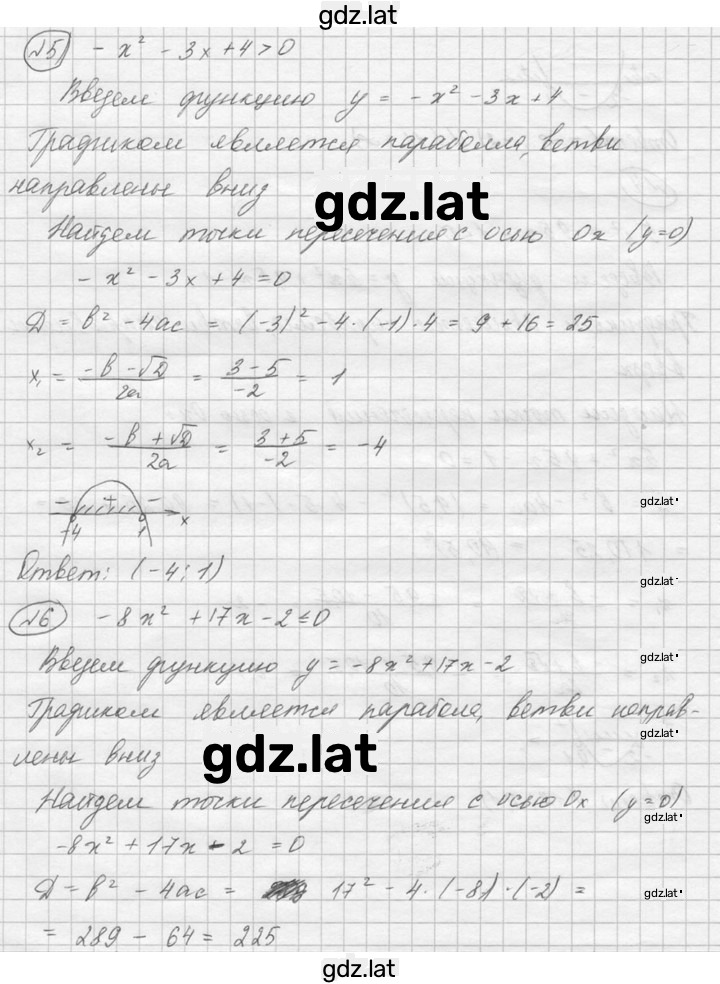 gdz.lat
№5) - x² - 3x + 4 > 0
Введем функцию y = - x² - 3x + 4
Графиком является параболла, ветви
направлены вниз
gdz.lat
Найдем точки пересечения с осью Ox (y=0)
- x² - 3x + 4 = 0
D = b² - 4ac = (-3)² - 4·(-1)·4 = 9 + 16 = 25
x₁ = (-b - √D)/2a = (3 - 5)/-2 = 1
x₂ = (-b + √D)/2a = (3 + 5)/-2 = -4
gdz.lat
- + -
-4 1 x
gdz.lat
Ответ: (-4; 1)
gdz.lat
№6 - 8x² + 17x - 2 ≤ 0
Введем функцию y = -8x² + 17x - 2
gdz.lat
Графиком является парабола, ветви направ-
gdz.lat
лены вниз
gdz.lat
Найдем точки пересечения с осью Ox (y=0)
gdz.lat
-8x² + 17x - 2 = 0
D = b² - 4ac = 17² - 4·(-8)·(-2) =
gdz.lat
= 289 - 64 = 225
gdz.lat